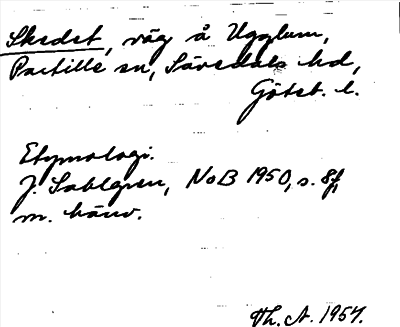 Skedet, väg å Ugglum,
Partille sn, Sävedals hd,
Göteb. l.
Etymologi.
J. Sahlgren, NoB 1950, s. 8f,
m. hänv.
Th. A. 1957.